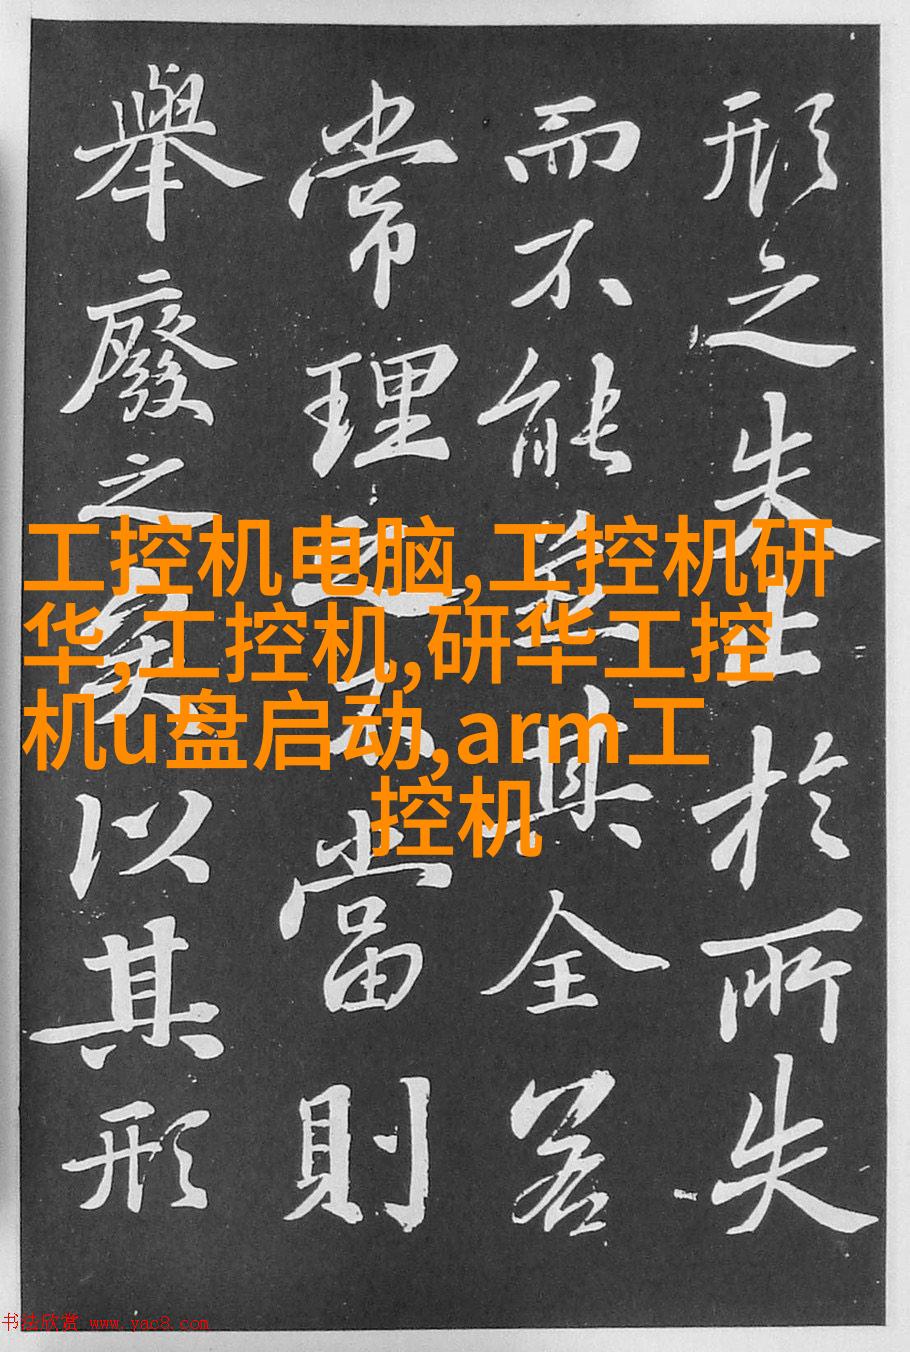 形之失止於所失
而不能其全若
常理之不當則
舉廢之矣以其形
工控机电脑,工控机研
华,工控机,研华工控
机u盘启动,arm工
控机
书法欣赏 www.yac8.com